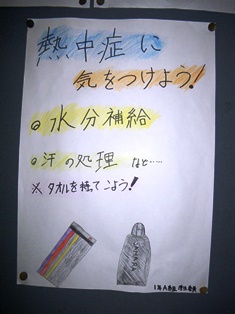 熱中症に
気をつけよう!
◎水分補給
◎汗の処理 など……
※タオルを持てこよう!